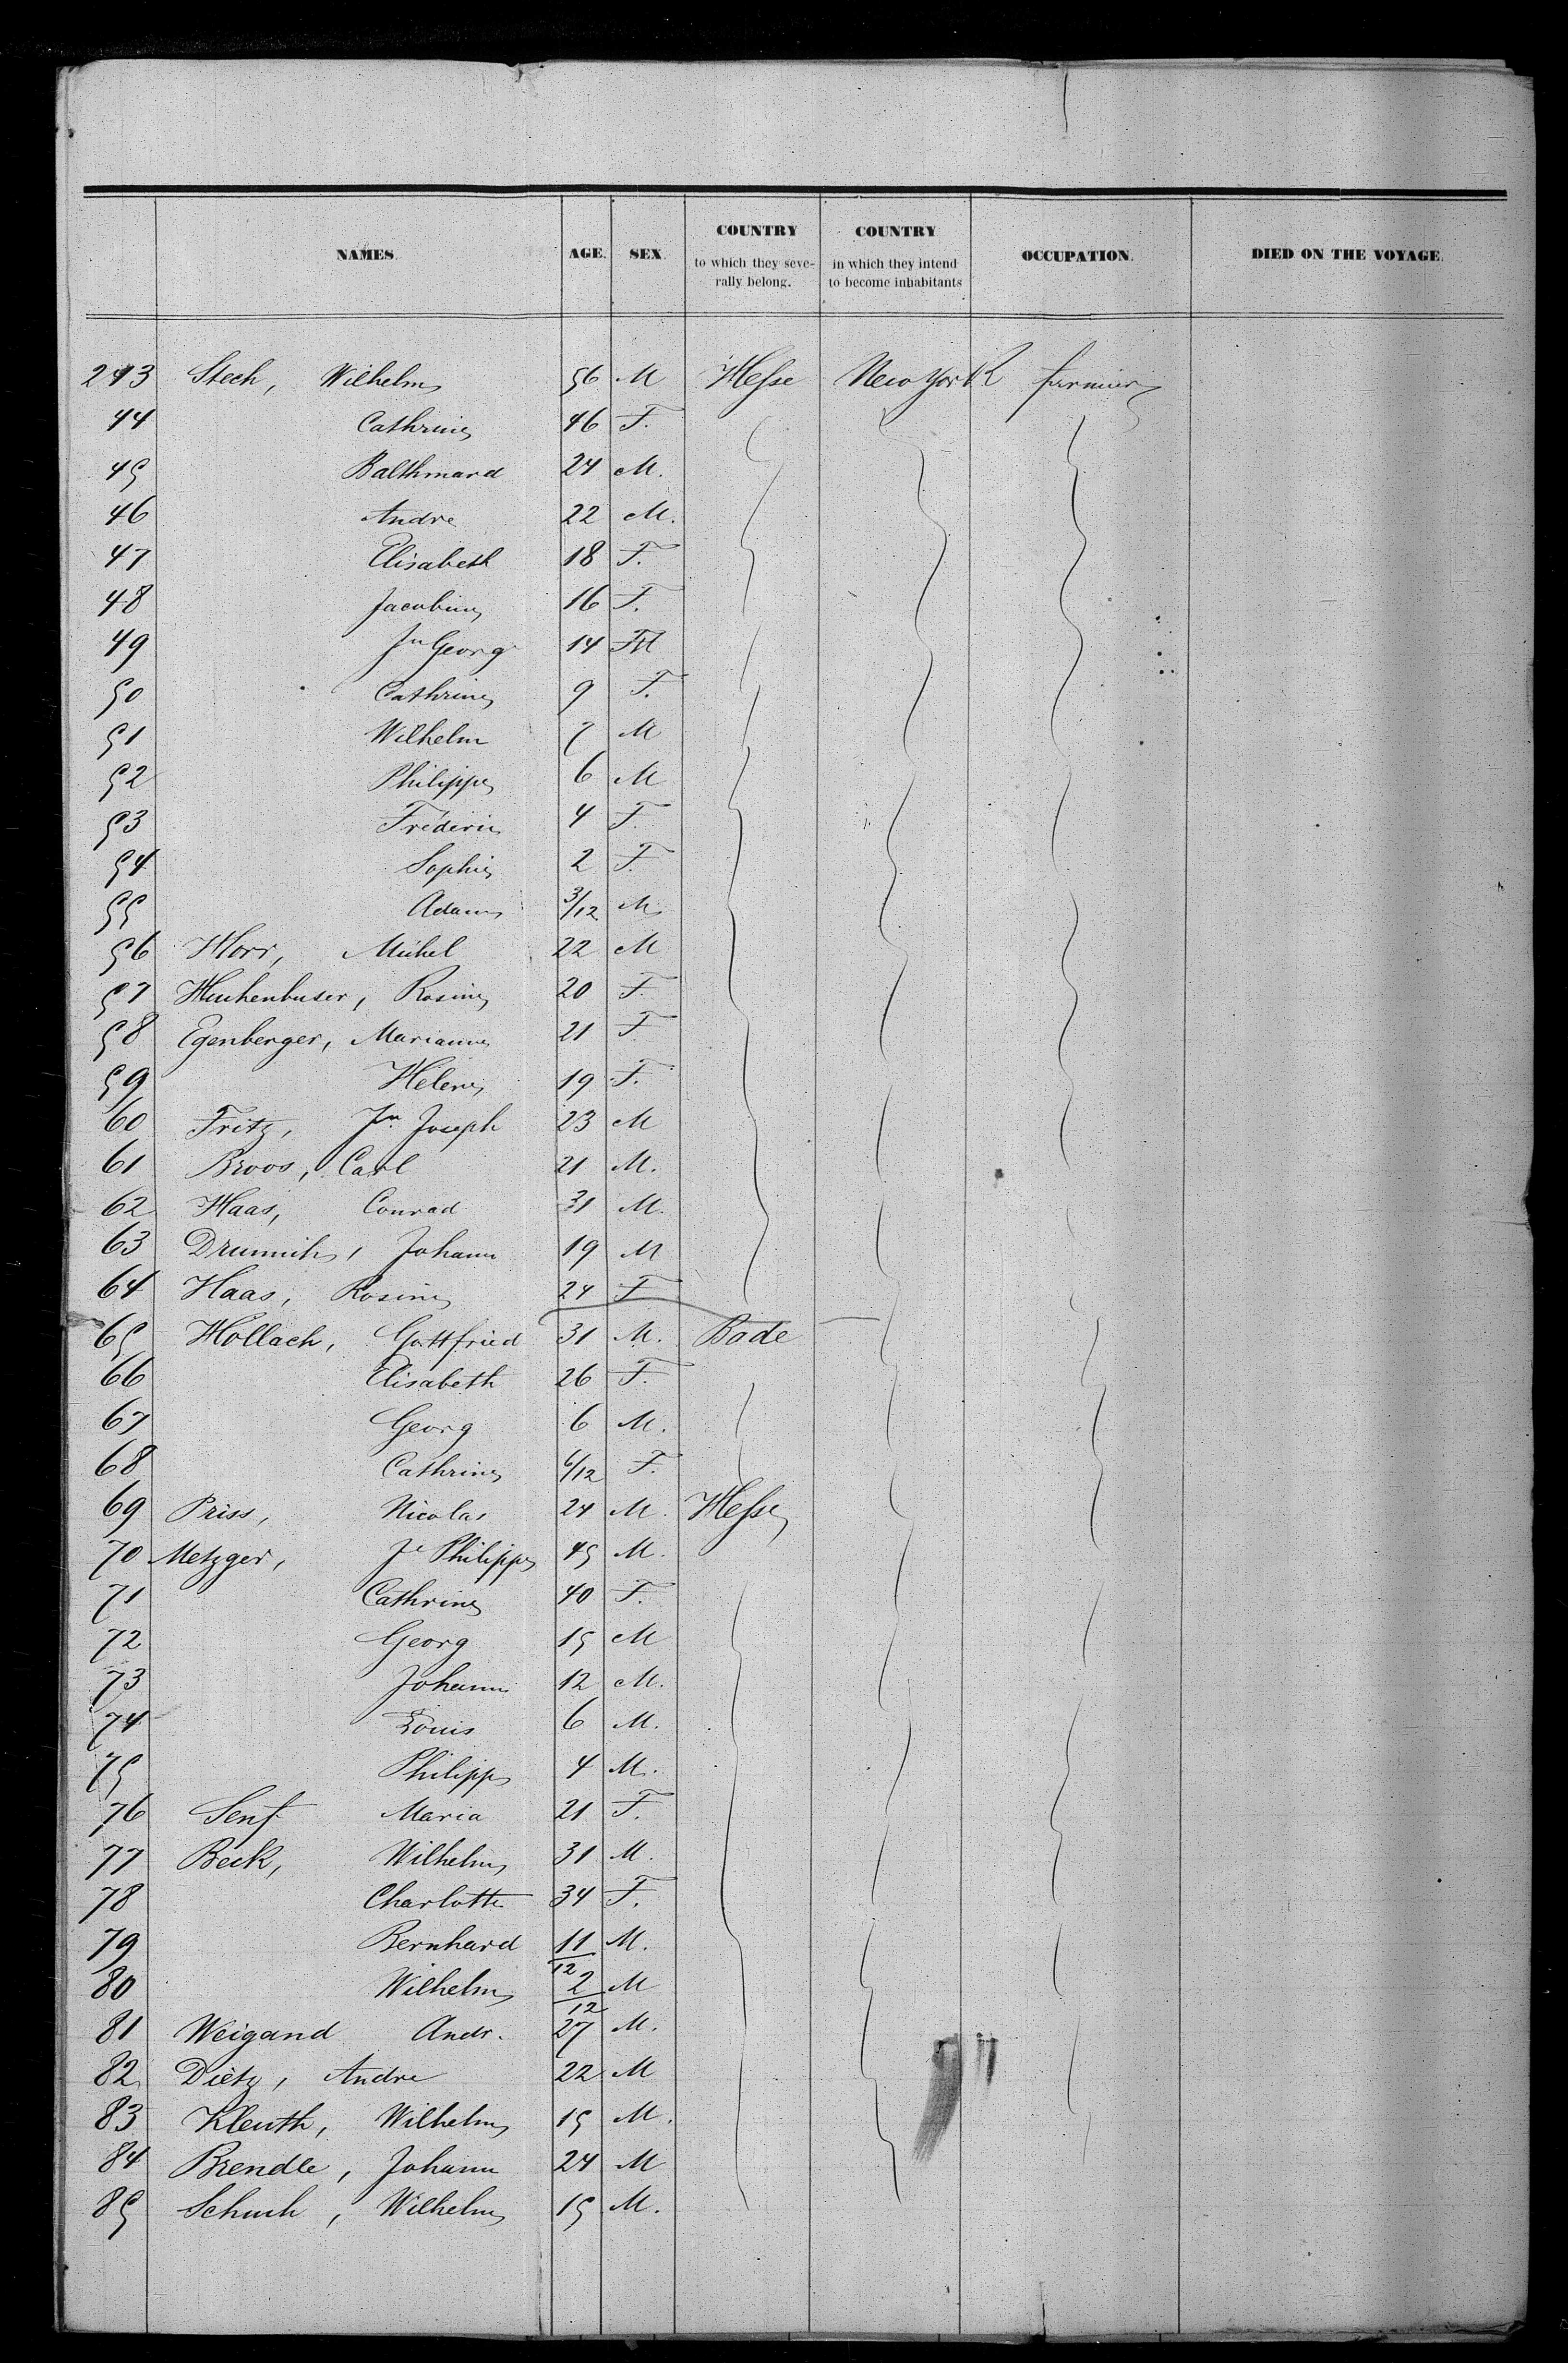 NAMES. AGE. SEX. COUNTRY to which they severally belong. COUNTRY in which they intend to become inhabitants OCCUPATION. DIED ON THE VOYAGE.
243 Stech, Wilhelm 56 M Hesse New York farmer
44 Cathrine 46 F.
45 Balthmard 24 M.
46 Andre 22 M.
47 Elisabeth 18 F.
48 Jacobine 16 F.
49 Jn Georg 14 M
50 Cathrine 9 F.
51 Wilhelm 7 M
52 Philippe 6 M
53 Fréderic 4 F.
54 Sophie 2 F.
55 Adam 3/12 M
56 Horr, Michel 22 M
57 Rosine 20 F.
58 Egenberger, Marianne 21 F
59 Hélene 19 F.
60 Fritz, Jn Joseph 23 M
61 Broos, Carl 21 M.
62 Haas, Conrad 31 M.
63 Johann 19 M
64 Haas, Rosine 24 F
65 Hollach, Gottfried 31 M. Bade
66 Elisabeth 26 F.
67 Georg 6 M.
68 Cathrine 6/12 F.
69 Priss, Nicolas 24 M. Hesse
70 Metzger, Je Philippe 45 M.
71 Cathrine 40 F.
72 Georg 15 M
73 Johann 12 M.
74 Louis 6 M.
75 Philipp 4 M.
76 Senf Maria 21 F.
77 Beck, Wilhelm 31 M.
78 Charlotte 34 F.
79 Bernhard 11/12 M.
80 Wilhelm 2/12 M
81 Weigand Andr. 27 M.
82 Dietz, Andre 22 M
83 Kleuth, Wilhelm 15 M.
84 Brendle, Johann 24 M
85 Schuch, Wilhelm 15 M.